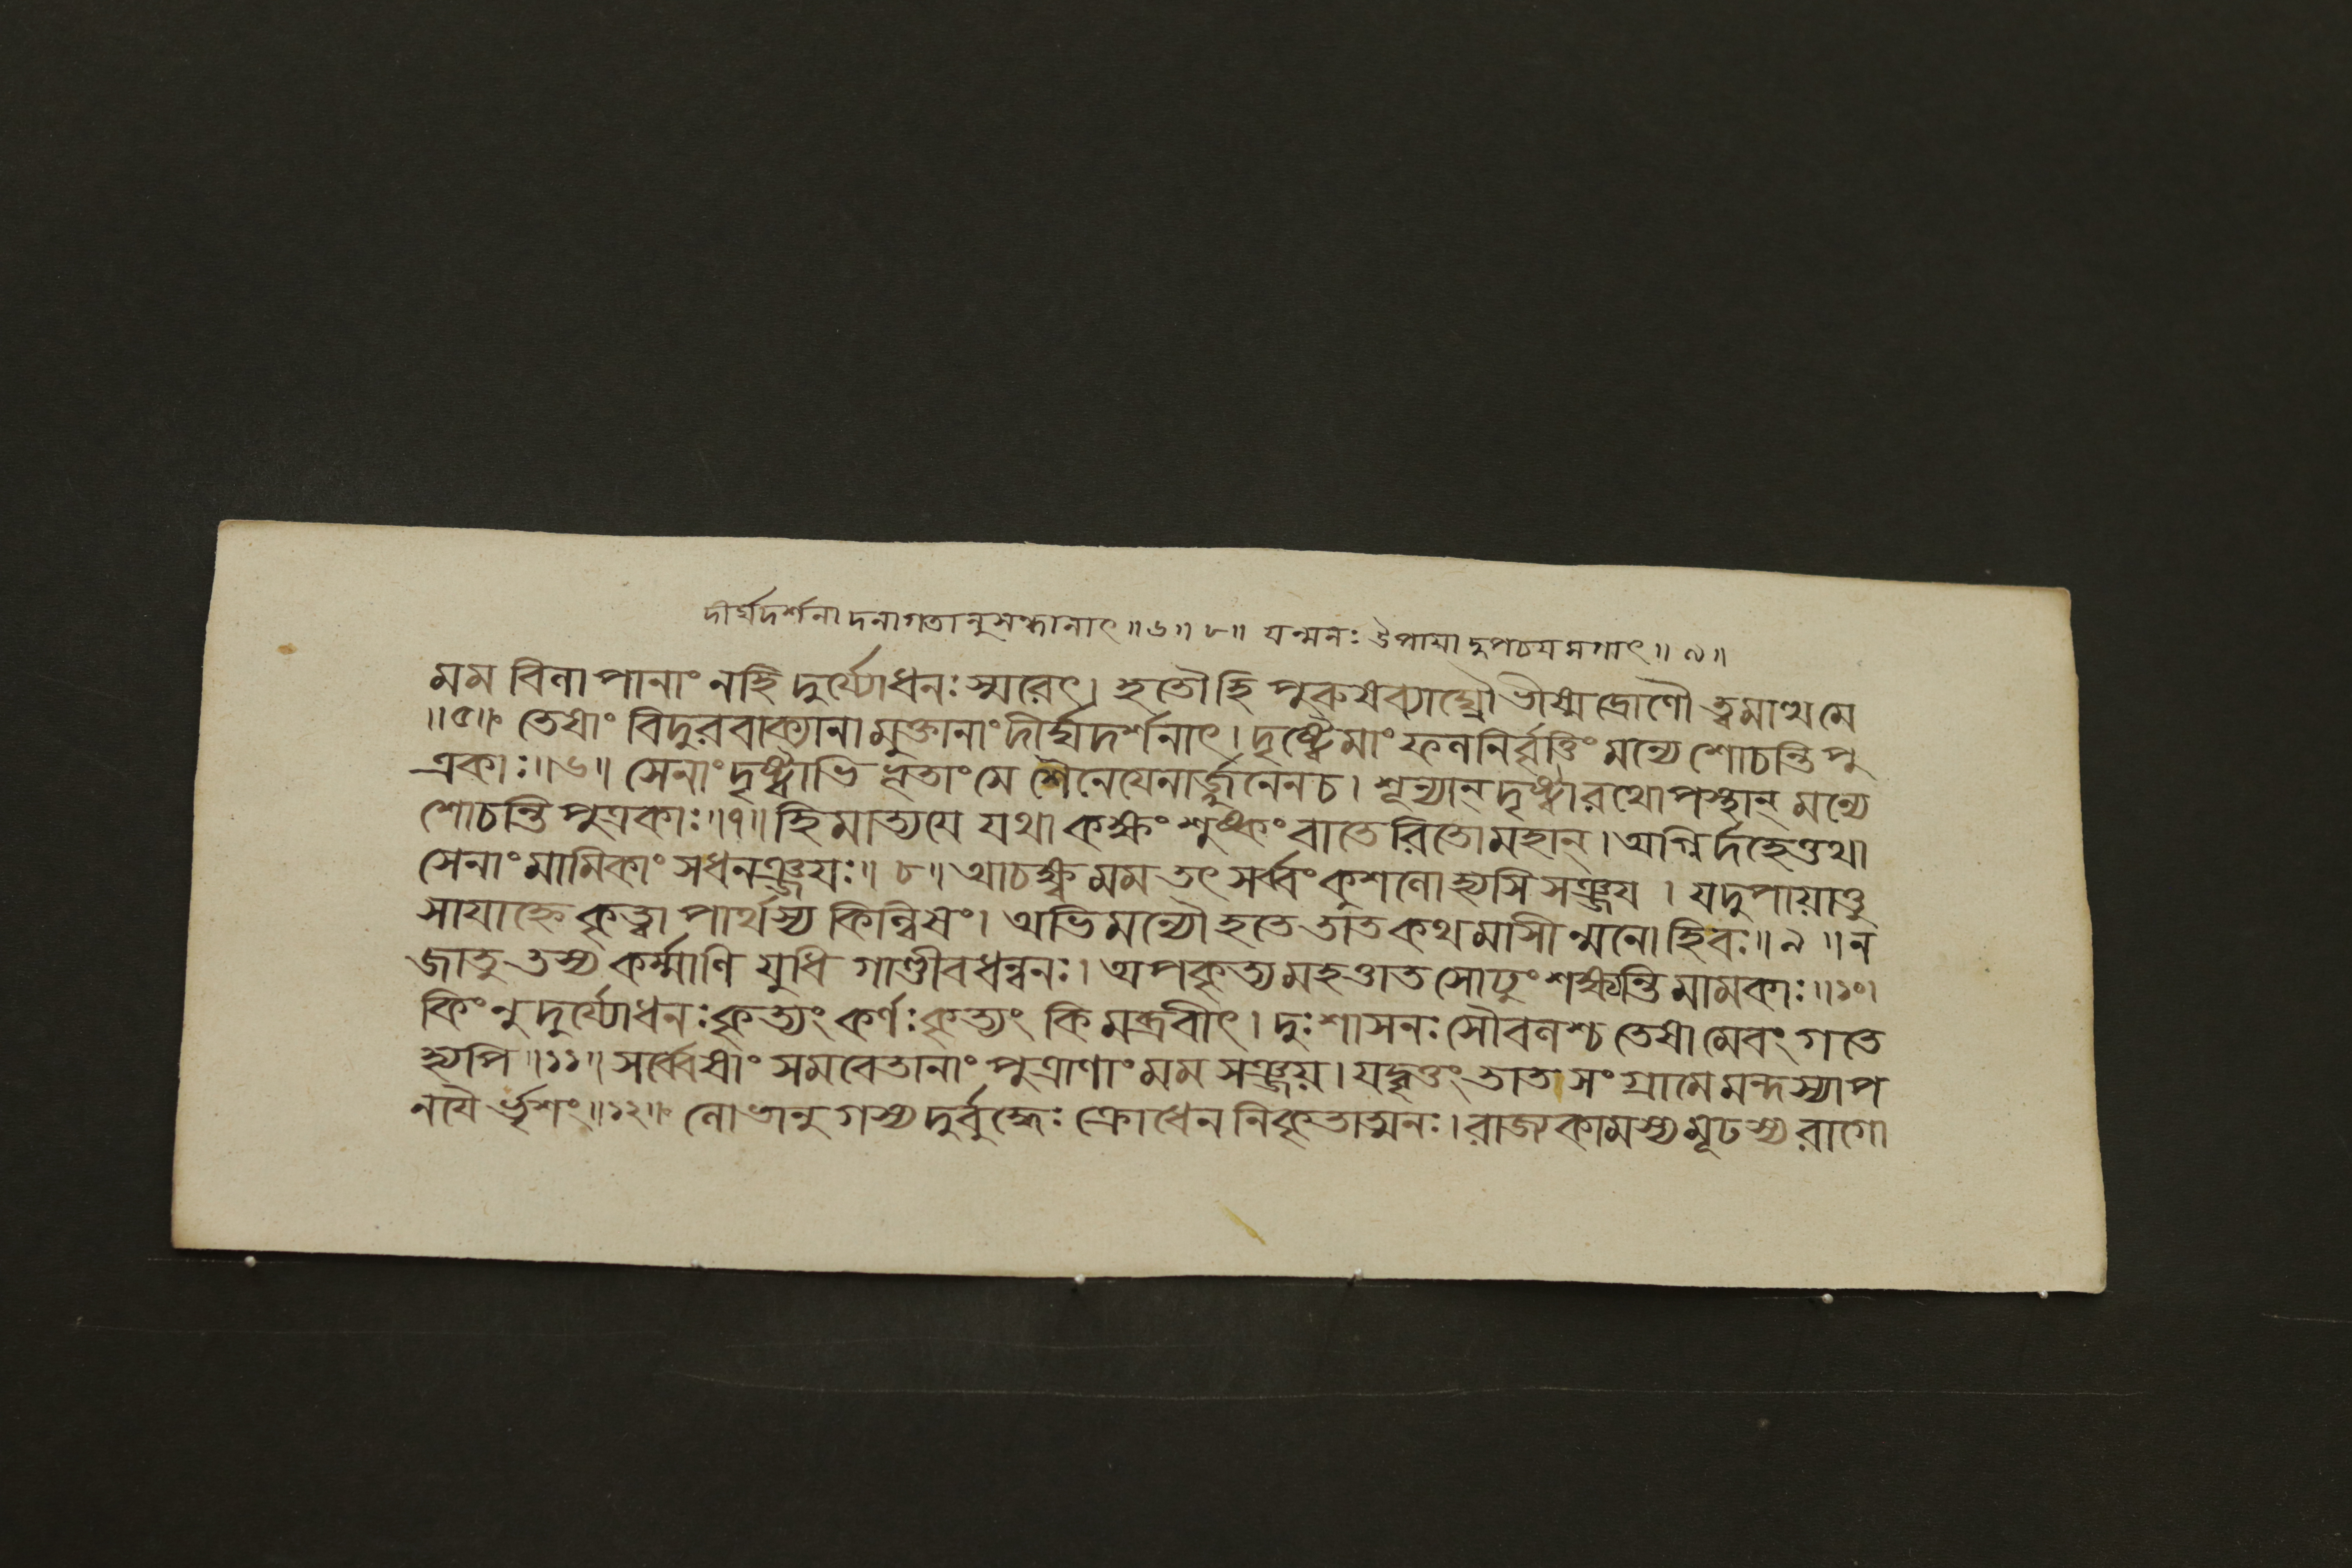 দীর্ঘদর্শনাদনাগতানুসন্ধানাৎ॥৬॥৮॥ যন্মনঃ ঔপায়াদুপচয়মগাৎ॥৯॥
মম বিলাপানাং নহি দুর্য্যোধনঃ স্মরেৎ। হতৌহি পুরুষব্যাঘ্রৌ ভীষ্মদ্রোণৌ ত্বমাত্থমে
॥৫॥ তেষাং বিদুরবাক্যানামুক্তানাং দীর্ঘদর্শনাৎ। দৃষ্ট্বৈমাং ফলনির্ব্বৃত্তিং মন্যে শোচন্তি পু
ত্রকাঃ॥৬॥ সেনাং দৃষ্ট্বাভিভূতাং মে শৈনেয়েনার্জ্জুনেনচ। শূন্যান্ দৃষ্ট্বা রথোপস্থান্ মন্যে
শোচন্তি পুত্রকাঃ॥৭॥ হিমাত্যয়ে যথা কক্ষং শুষ্কং বাতেরিতোমহান্। অগ্নির্দহেত্তথা
সেনাং মামিকাং সধনঞ্জয়ঃ॥৮॥ আচক্ষ্ব মম তৎ সর্ব্বং কুশলোহ্যসি সঞ্জয়। যদুপায়াত্তু
সায়াহ্নে কৃত্বা পার্থস্য কিল্বিষং। অভিমন্যৌ হতে তাত কথমাসীন্মনো হিবঃ॥৯॥ ন
জাতু তস্য কর্ম্মাণি যুধি গাণ্ডীবধন্বনঃ। অপকৃত্য মহত্তাত সোঢুং শক্ষ্যন্তি মামকাঃ॥১০।
কিংনু দুর্য্যোধনঃ কৃত্যং কর্ণঃ কৃত্যং কিমব্রবীৎ। দুঃশাসনঃ সৌবলশ্চ তেষামেবং গতে
হ্যপি॥১১॥ সর্ব্বেষাং সমবেতানাং পুত্রাণাং মম সঞ্জয়। যদ্বৃত্তং তাত সংগ্রামে মন্দস্যাপ
নয়ৈর্ভৃশং॥১২॥ লোভানুগস্য দুর্বুদ্ধেঃ ক্রোধেন নিকৃতাত্মনঃ। রাজ্যকামস্য মূঢস্য রাগো